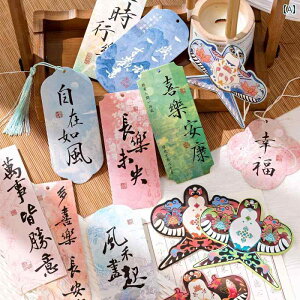 時
行
喜樂安康
自在如風
長樂未央
幸福
萬事皆勝意
多喜樂
長安
風禾盡起
[A]